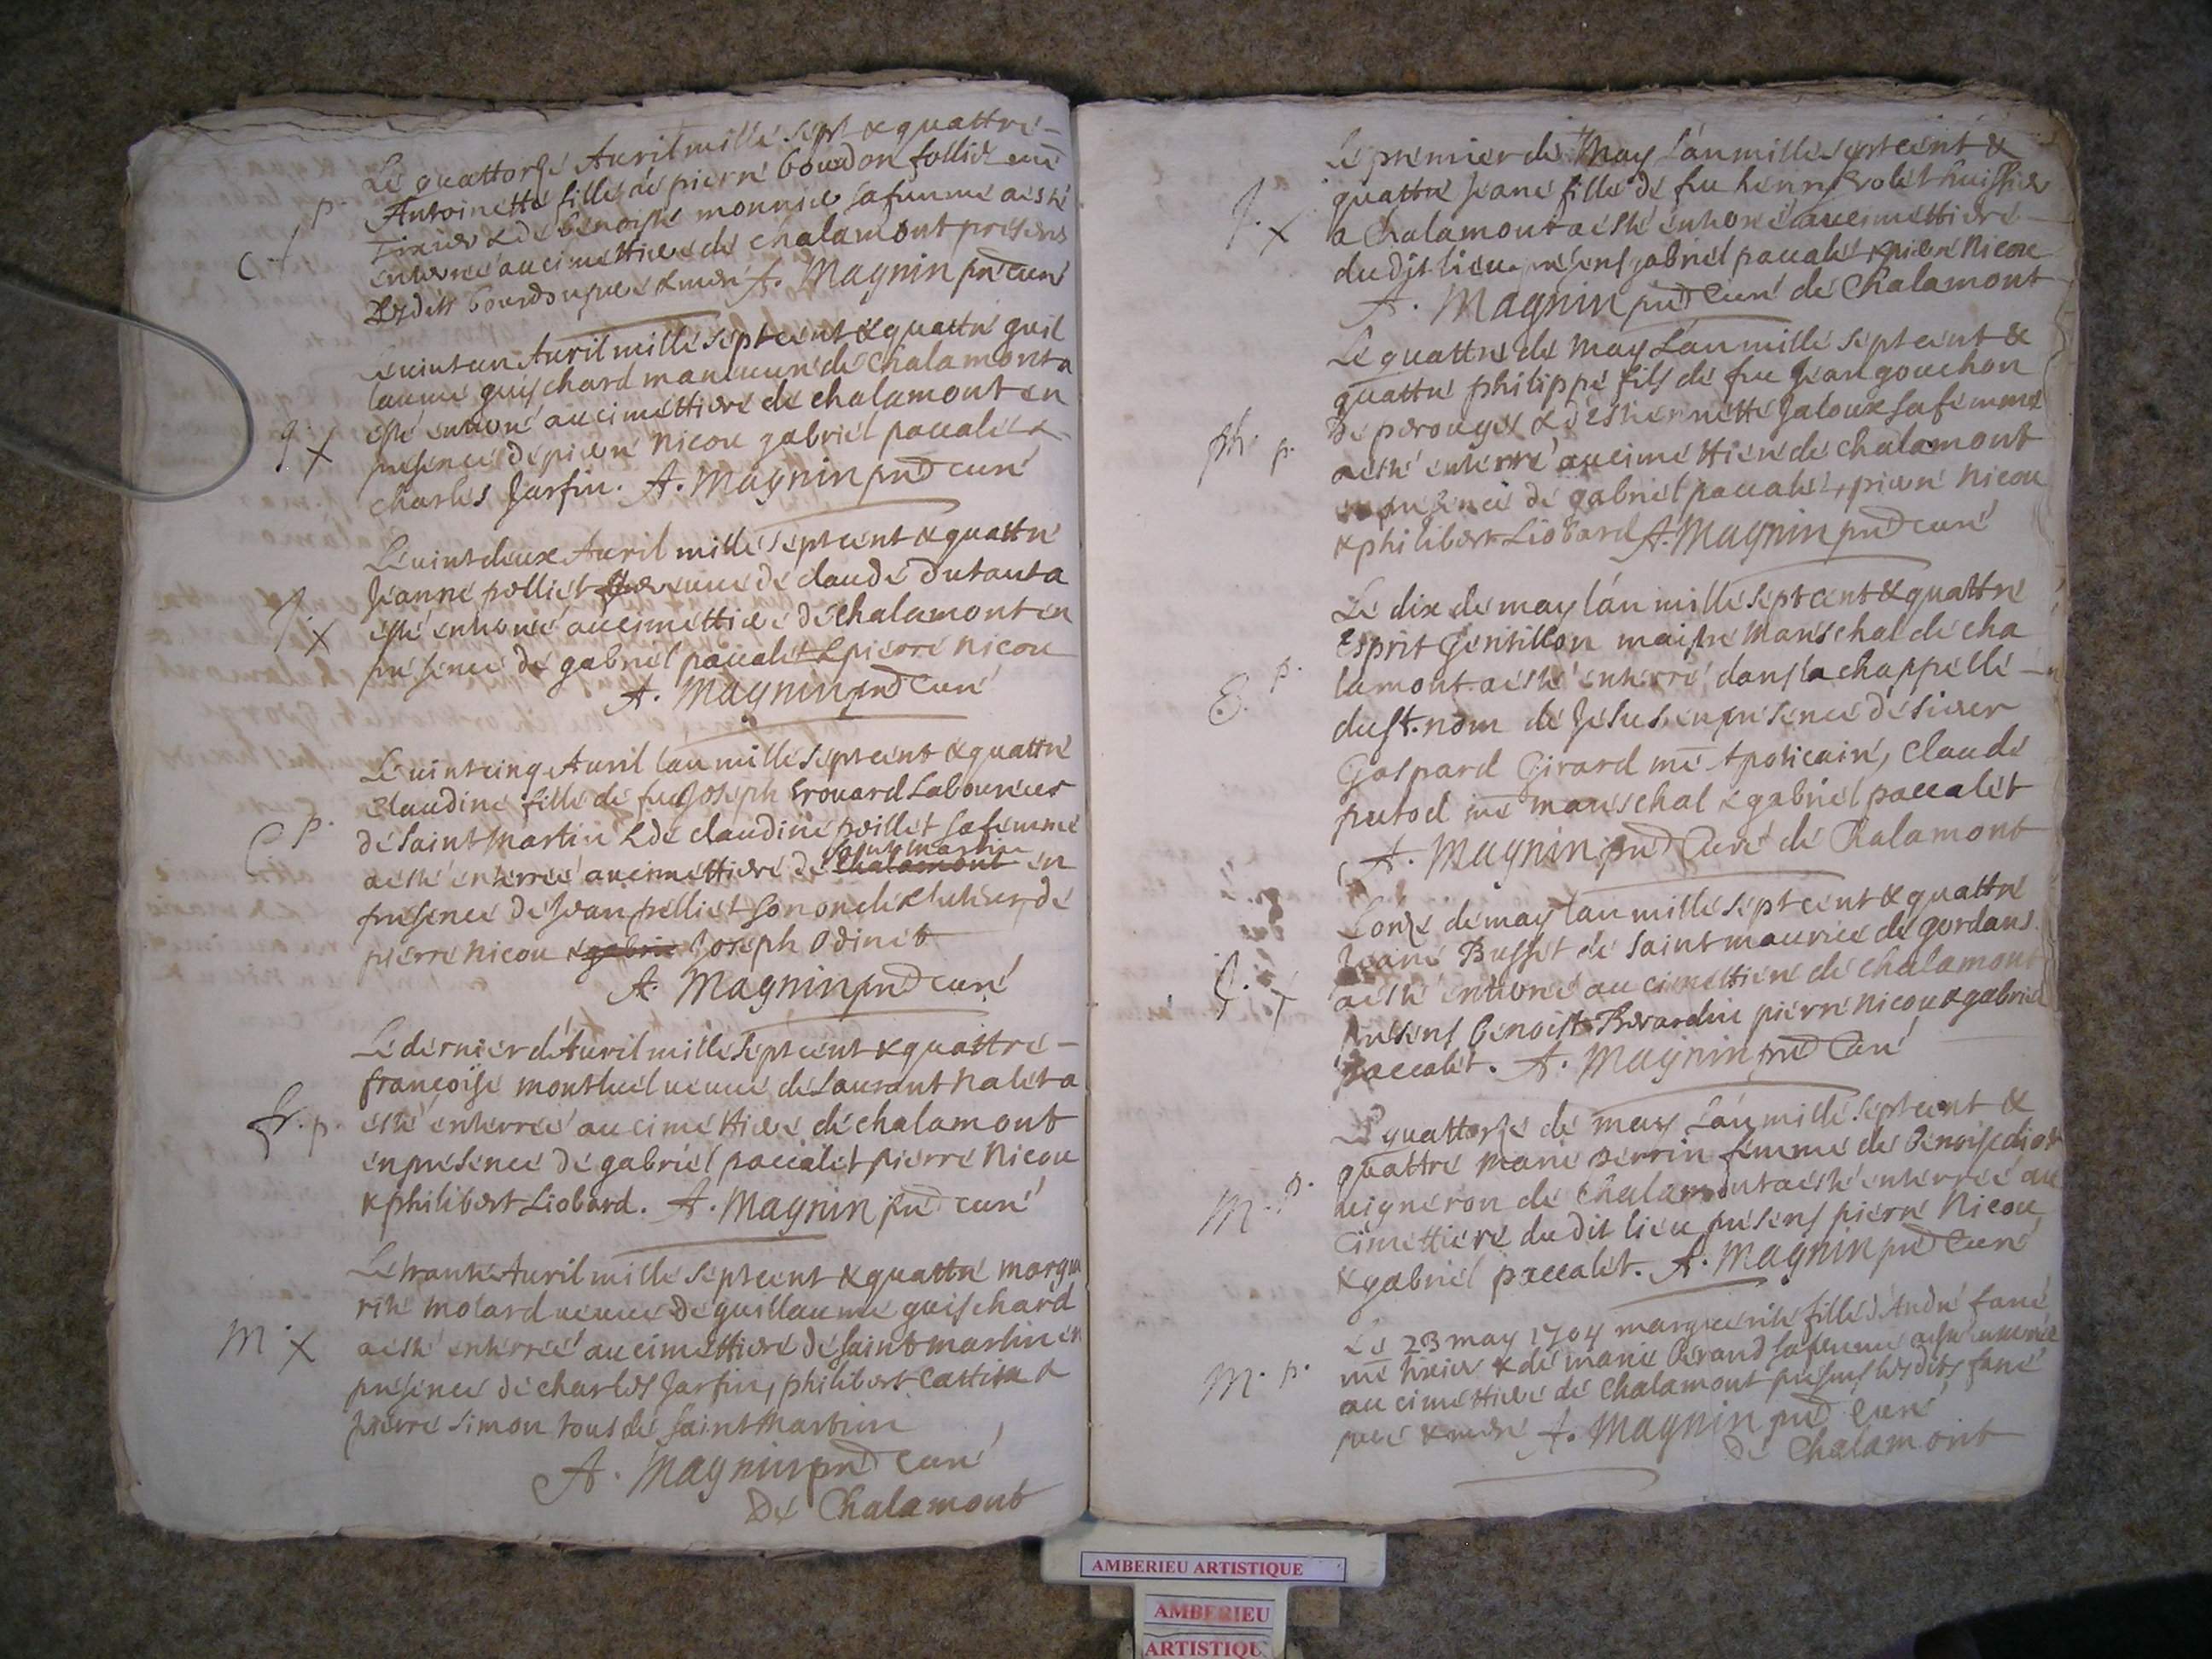 Le quattorze Auril mille sept & quattre
p. Antoinette fille de pierre bourdon follié me
Tixier & de benoiste monnier sa femme a esté
enterré au cimettiere de chalamont presens
lesdits bourdon pere & mere A. Magnin pre curé
Le uint un Auril mille sept cent & quattre guil
laume guischard manœuure de chalamont a
esté enterré au cimettiere de chalamont en
g. X presence de pierre nicou gabriel paccalet &
charles Jarfin. A. Magnin pre curé
Le uint deux Auril mille sept cent & quattre
Jeanne pelliet ueuue de claude dutant a
J. X esté enterré au cimettiere de chalamont en
presence de gabriel paccalet & pierre nicou
A. Magnin pre curé
Le uint cinq Auril lan mille sept cent & quattre
Claudine fille de feu Joseph Erouard Laboureur
C p. de Saint Martin & de claudine peillet sa femme
saint martin
a esté enterrée au cimettiere de chalamont en
presence de Jean pelliet son oncle & tuteur, de
pierre nicou & gabrie Joseph Odinet
A. Magnin pre curé
Le dernier d'Auril mille sept cent & quattre
françoise montluel ueuue de Laurant nalet a
fr. p. esté enterrée au cimettiere de chalamont
en presence de gabriel paccalet pierre Nicou
& philibert Liobard. A. Magnin pre curé
Le trante Auril mille sept cent & quattre margue
rite molard ueuue de guillaume guischard
M. X a esté enterrée au cimettiere de saint martin en
presence de charles Jarfin, philibert Cattin &
pierre simon tous de saint Martin
A. Magnin pre curé
De Chalamont
Le premier de May l'an mille sept cent &
quattre Jeane fille de feu henry Bolet huissier
J. X a Chalamont a esté enterré au cimettiere
du dit lieu, presens gabriel paccalet & pierre Nicou
A. Magnin pre Curé de Chalamont
Le quattre de May L'an mille sept cent &
quattre philippe fils de feu Jean gouchon
de perouges & d'estiennette Jaloux sa femme
ph. p. a esté enterré au cimettiere de chalamont
en presence de gabriel paccalet, pierre Nicou
& philibert Liobard A. Magnin pre curé
Le dix de may l'an mille sept cent & quattre
Esprit Gentillon maistre Mareschal de cha
E. p. lamont a esté enterré dans la chappelle
du st. nom de Jesus, en presence de sieur
Gaspard Girard me Apoticaire, Claude
putod me mareschal & gabriel paccalet
A. Magnin pre Curé de Chalamont
L'onze de may l'an mille sept cent & quattre
Jeane Busset de saint maurice de gordans
J. X a esté enterré au cimettiere de chalamont
presens benoist Berardin pierre nicou & gabriel
paccalet. A. Magnin pre Curé
Le quattorze de may L'an mille sept cent &
quattre Marie perrin femme de Benoise diot
M. p. uigneron de Chalamont a esté enterrée au
cimettiere du dit lieu presens pierre Nicou
& gabriel paccalet. A. Magnin pre Curé
Le 23 may 1704 marguerite fille d'André fané
me tixier & de marie Berand sa femme a esté enterrée
M. p. au cimettiere de Chalamont presens lesdits fané
pere & mere A. Magnin pre Curé
de Chalamont
AMBERIEU ARTISTIQUE
AMBERIEU
ARTISTIQU